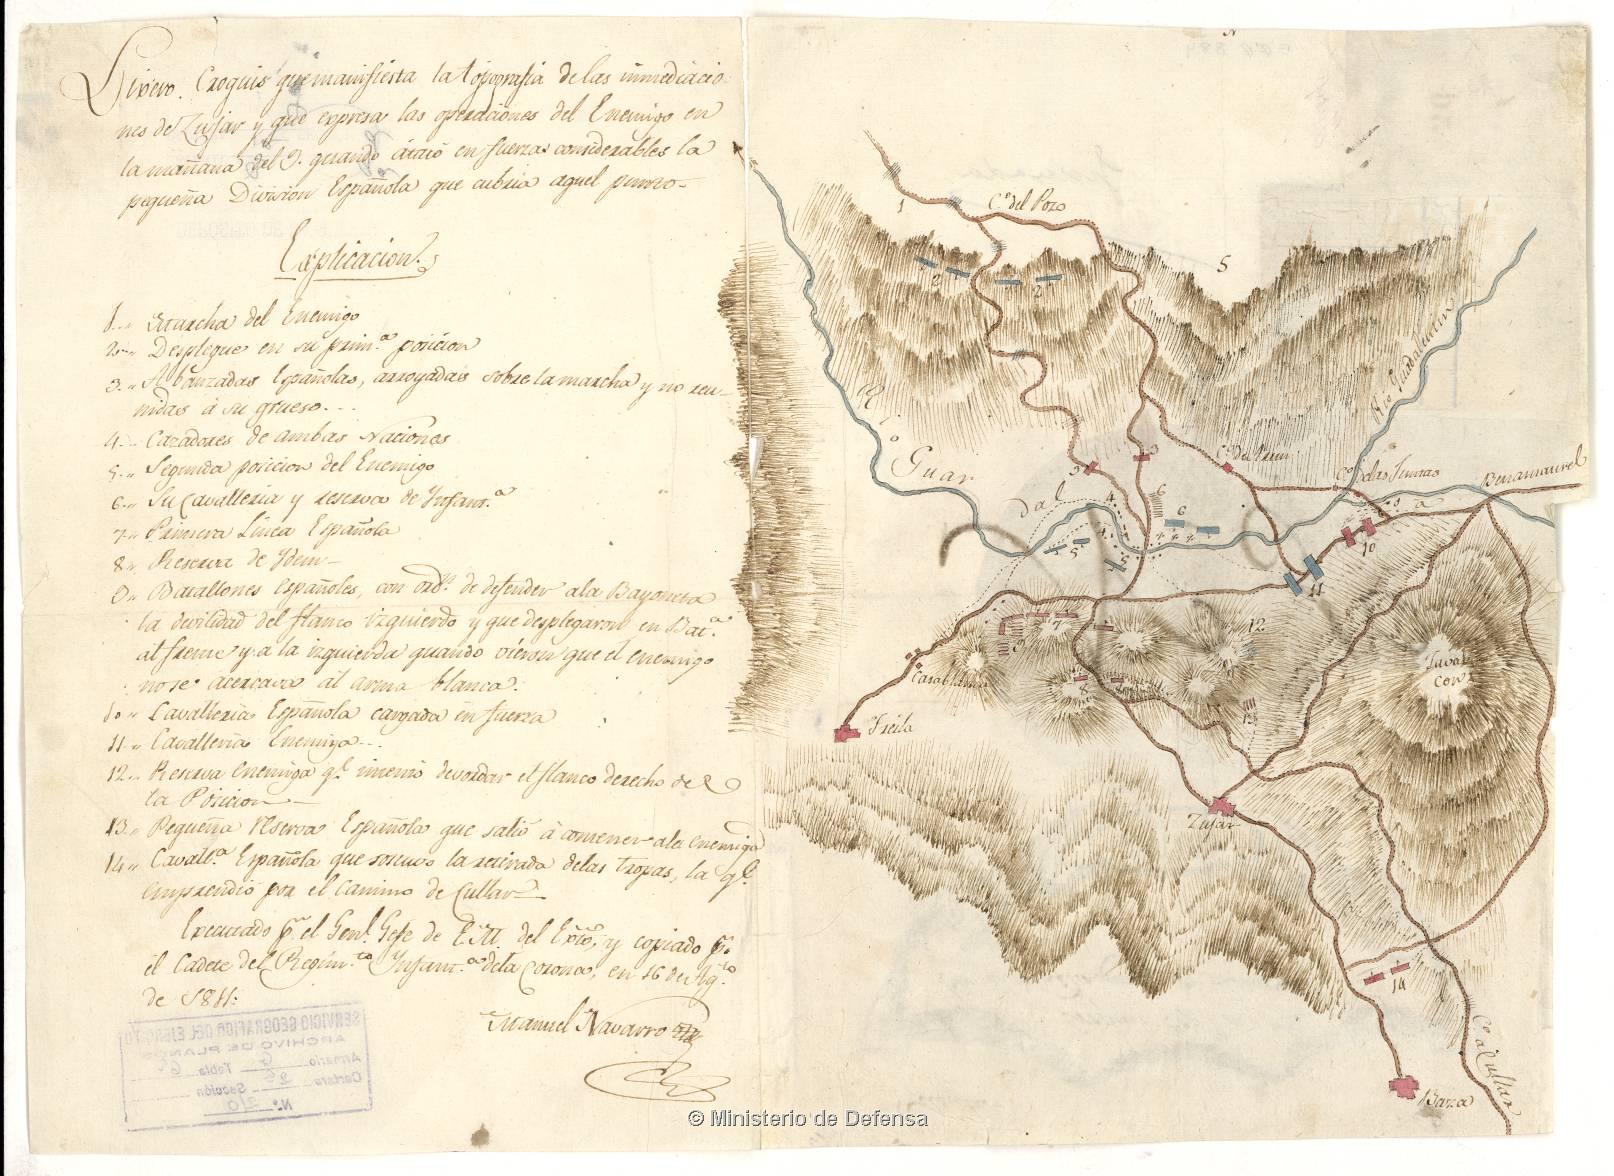 Lixero Croquis que manifiesta la topografia de las inmediacio-
nes de Zujar y que expresa las operaciones del Enemigo en
la mañana del 9. quando átacó en fuerzas considerables la
pequeña Division Española que cubria aquel punto-
Explicacion.
1..,, Marcha del Enemigo
2..,, Desplegue en su prim.ª posicion
3..,, Abanzadas Españolas, arroyadas sobre la marcha y no reu-
nidas á su grueso...
4..,, Cazadores de ambas Naciones
5..,, Segunda posicion del Enemigo
6..,, Su Cavalleria y reserva de Ynfant.ª
7..,, Primera Linea Española
8..,, Reserva de Ydem-
9..,, Batallones Españoles, con ordn. de defender ala Bayoneta
la devilidad del flanco izquierdo y que desplegaron en Bat.ª
al frente y a la izquierda quando vieron que el enemigo
no se acercava al arma blanca.
10..,, Cavalleria Española cargada en fuerza
11..,, Cavalleria Enemiga...
12..,, Reserva enemiga q.e intentó devordar el flanco derecho de
la Posicion
13..,, Pequeña reserva Española que salió á contener ala enemiga
14..,, Cavall.ª Española que sostuvo la retirada delas tropas, la q.e
emprendió por el Camino de Cullar
Executado p.r el Gen.l Gefe de E.M. del Exto, y copiado p.r
el Cadete del Regim.to Ynfant.ª dela Corona, en 16 de Ag.to
de 1811:
Manuel Navarro
SERVICIO GEOGRAFICO DEL EJERCITO
ARCHIVO DE PLANOS
Armario G Tabla 6ª
Cartera 26 Sección
N.º 210
N
1
C.º del Pozo
2
2
5
Rio Guadalentin
Rio
Guar
dal
3
3
C.º del
C.º de las Juntas
Benamaurel
4
4
5
6
6
10
11
7
9
8
12
13
Javal
con
Casablanca
Freila
Zujar
14
C.º a Cullar
Baza
© Ministerio de Defensa